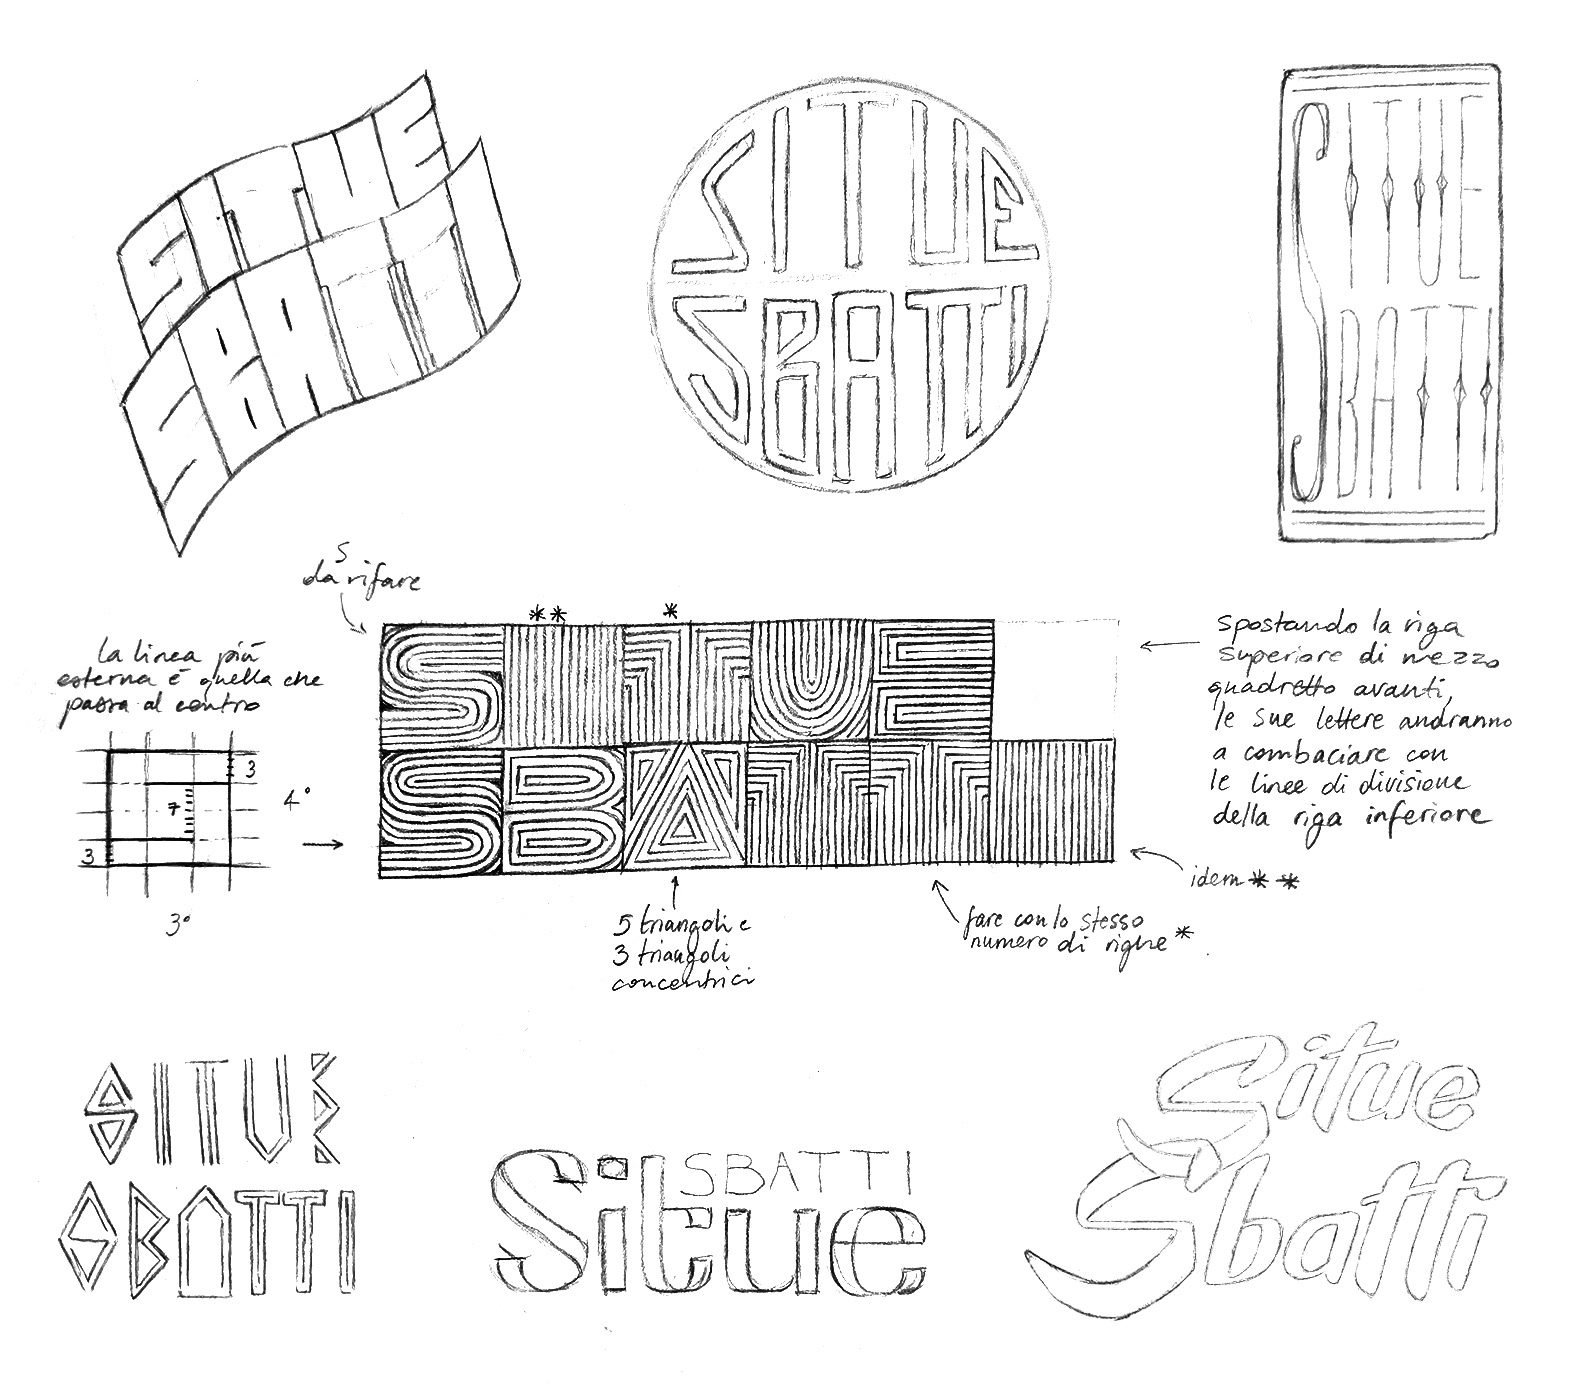 SITUE
SBATTI
SITUE
SBATTI
SITUE
SBATTI
S
da rifare
** *
la linea più
esterna è quella che
passa al centro
3
7
3
4°
3°
SITUE
SBATTI
spostando la riga
superiore di mezzo
quadretto avanti,
le sue lettere andranno
a combaciare con
le linee di divisione
della riga inferiore
idem **
5 triangoli e
3 triangoli
concentrici
fare con lo stesso
numero di righe *
SITUE
SBATTI
SBATTI
Situe
Situe
Sbatti